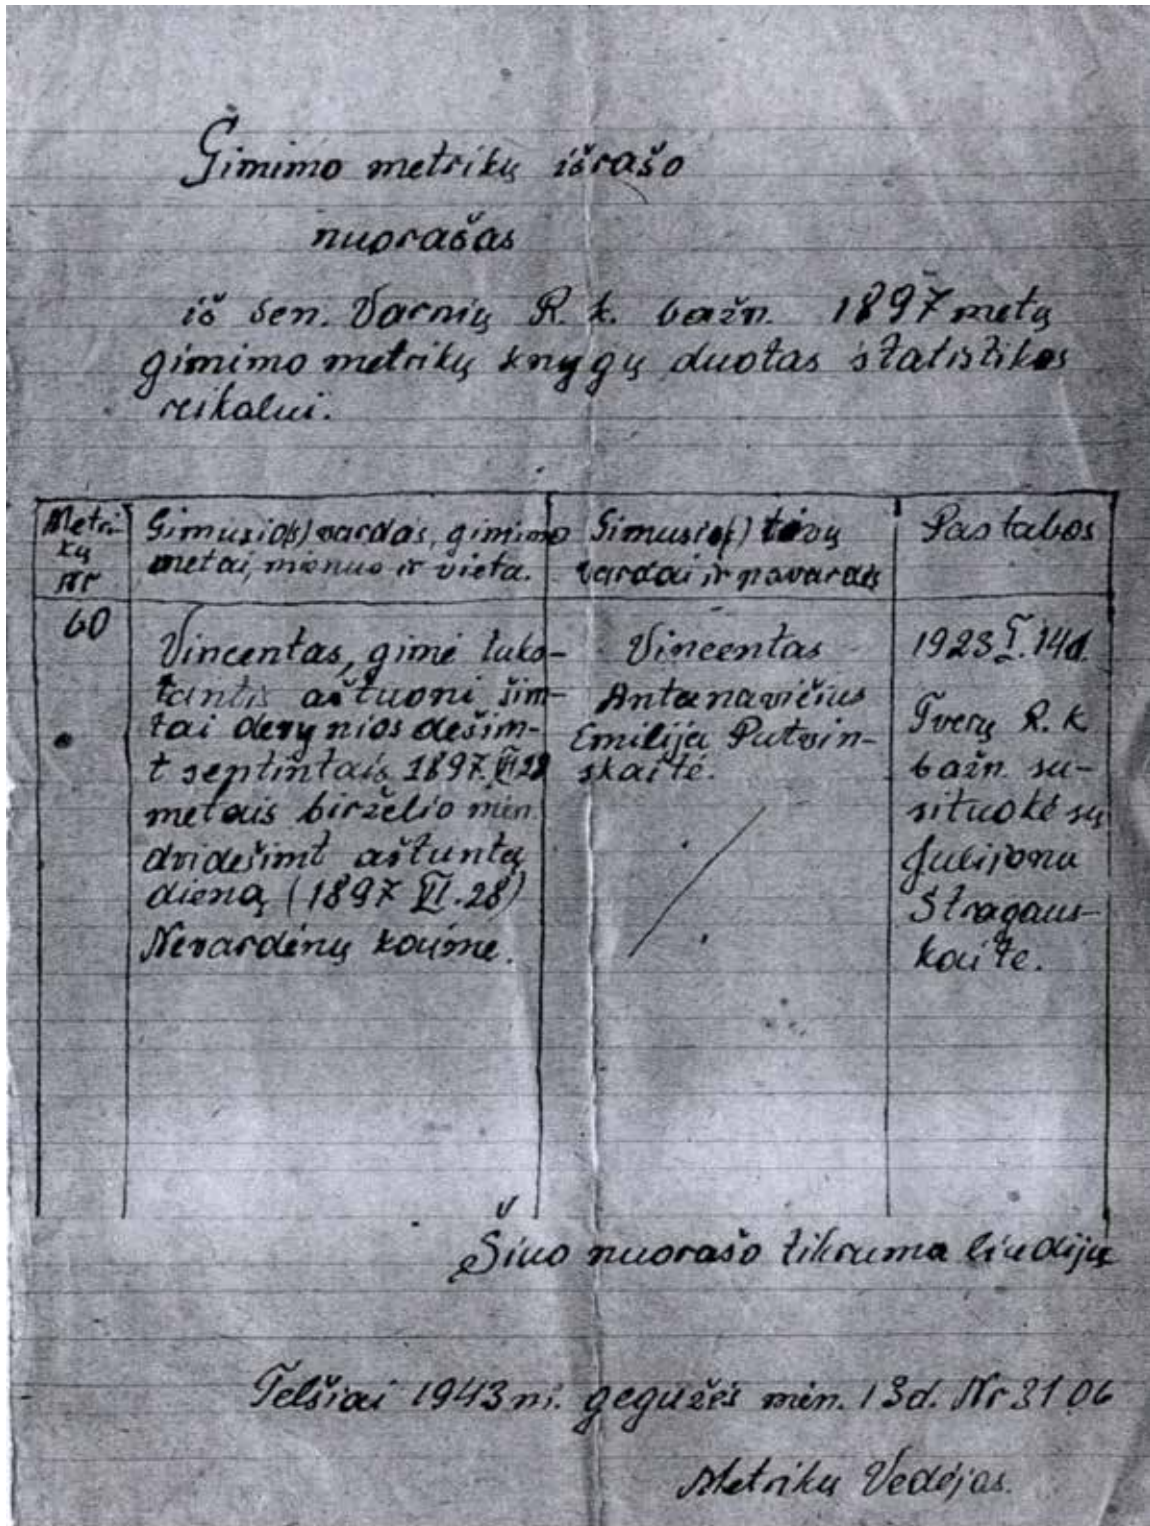 Gimimo metrikų išrašo
nuorašas
iš sen. Varnių R. k. bažn. 1897 metų
gimimo metrikų knygų duotas statistikos
reikalui.
Metri-
kų
Nr
Gimusio(s) vardas, gimimo
metai, mėnuo ir vieta.
Gimusio(s) tėvų
vardai ir pavardės
Pastabos
60
Vincentas, gimė tuks-
tantis aštuoni šim-
tai devynios dešim-
t septintais 1897.VI.28
metais birželio mėn.
dvidešimt aštuntą
dieną (1897 VI.28)
Nevardėnų kaime.
Vincentas
Antanavičius
Emilija Putvin-
skaitė.
1923 I. 14d.
Tverų R. k.
bažn. su-
situokė su
Julijona
Stragaus-
kaite.
Šiuo nuorašo tikruma liudiju
Telšiai 1943 m. gegužės mėn. 13d. Nr 3106
Metrikų Vedėjas.